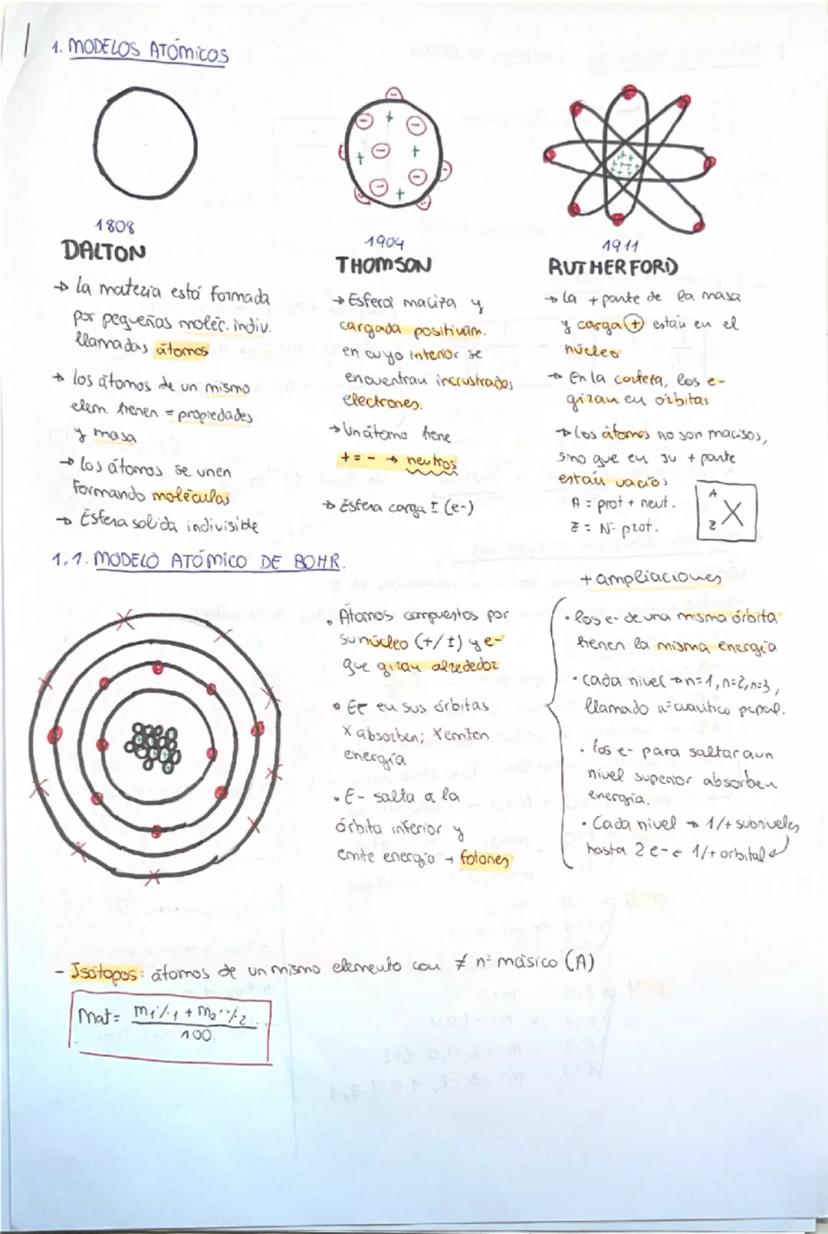 1. MODELOS ATÓMICOS
1808
DALTON
→ La materia está formada
por pequeñas moléc. indiv.
llamadas átomos
→ los átomos de un mismo
elem. tienen = propiedades
y masa
→ los átomos se unen
formando moléculas
→ Esfera solida indivisible
1904
THOMSON
→ Esfera maciza y
cargada positivam.
en cuyo interior se
encuentran incrustrados
electrones.
→ Un átomo tiene
+ = - → neutros
→ Esfera carga ± (e-)
1911
RUTHERFORD
→ La + parte de la masa
y carga (+) están en el
núcleo
→ En la corteza, los e-
giran en órbitas
→ Los átomos no son macisos,
sino que en su + parte
están vacíos
A = prot + neut.
Z = Nº prot.
A
Z X
1.1. MODELO ATÓMICO DE BOHR.
• Átomos compuestos por
su núcleo (+/±) y e-
que giran alrededor
• E- en sus órbitas
X absorben; X emiten
energía
• E- salta a la
órbita inferior y
emite energía → fotones
+ ampliaciones
• los e- de una misma órbita
tienen la misma energía
• cada nivel → n=1, n=2, n=3,
llamado nº cuántico
• los e- para saltar a un
nivel superior absorben
energía.
• Cada nivel → 1/+ subniveles
hasta 2 e- ← 1/+ orbital
- Isótopos: átomos de un mismo elemento con ≠ nº másico (A)
Mat = m1·%1 + m2·%2...
100